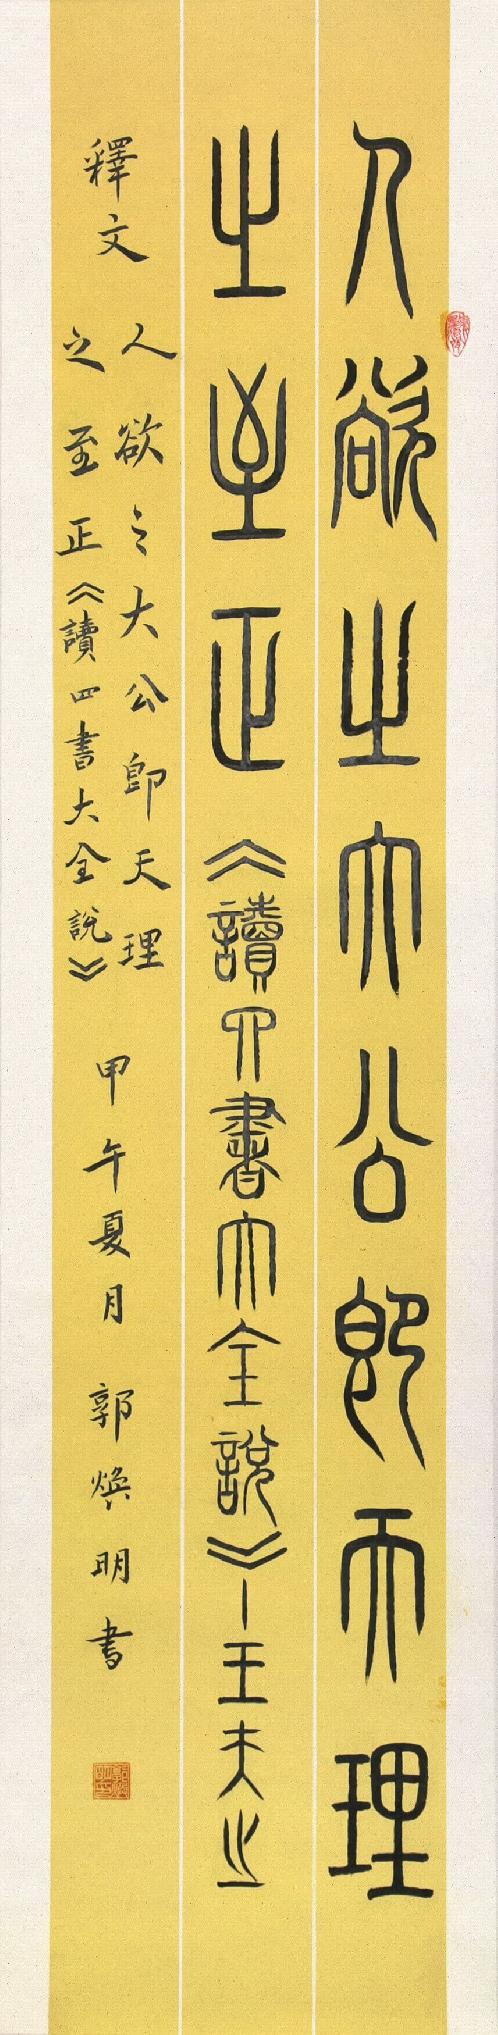 人欲之大公即天理
之至正《讀四書大全說》—王夫之
釋文
人欲之大公即天理
之至正《讀四書大全說》
甲午夏月 郭煥明書